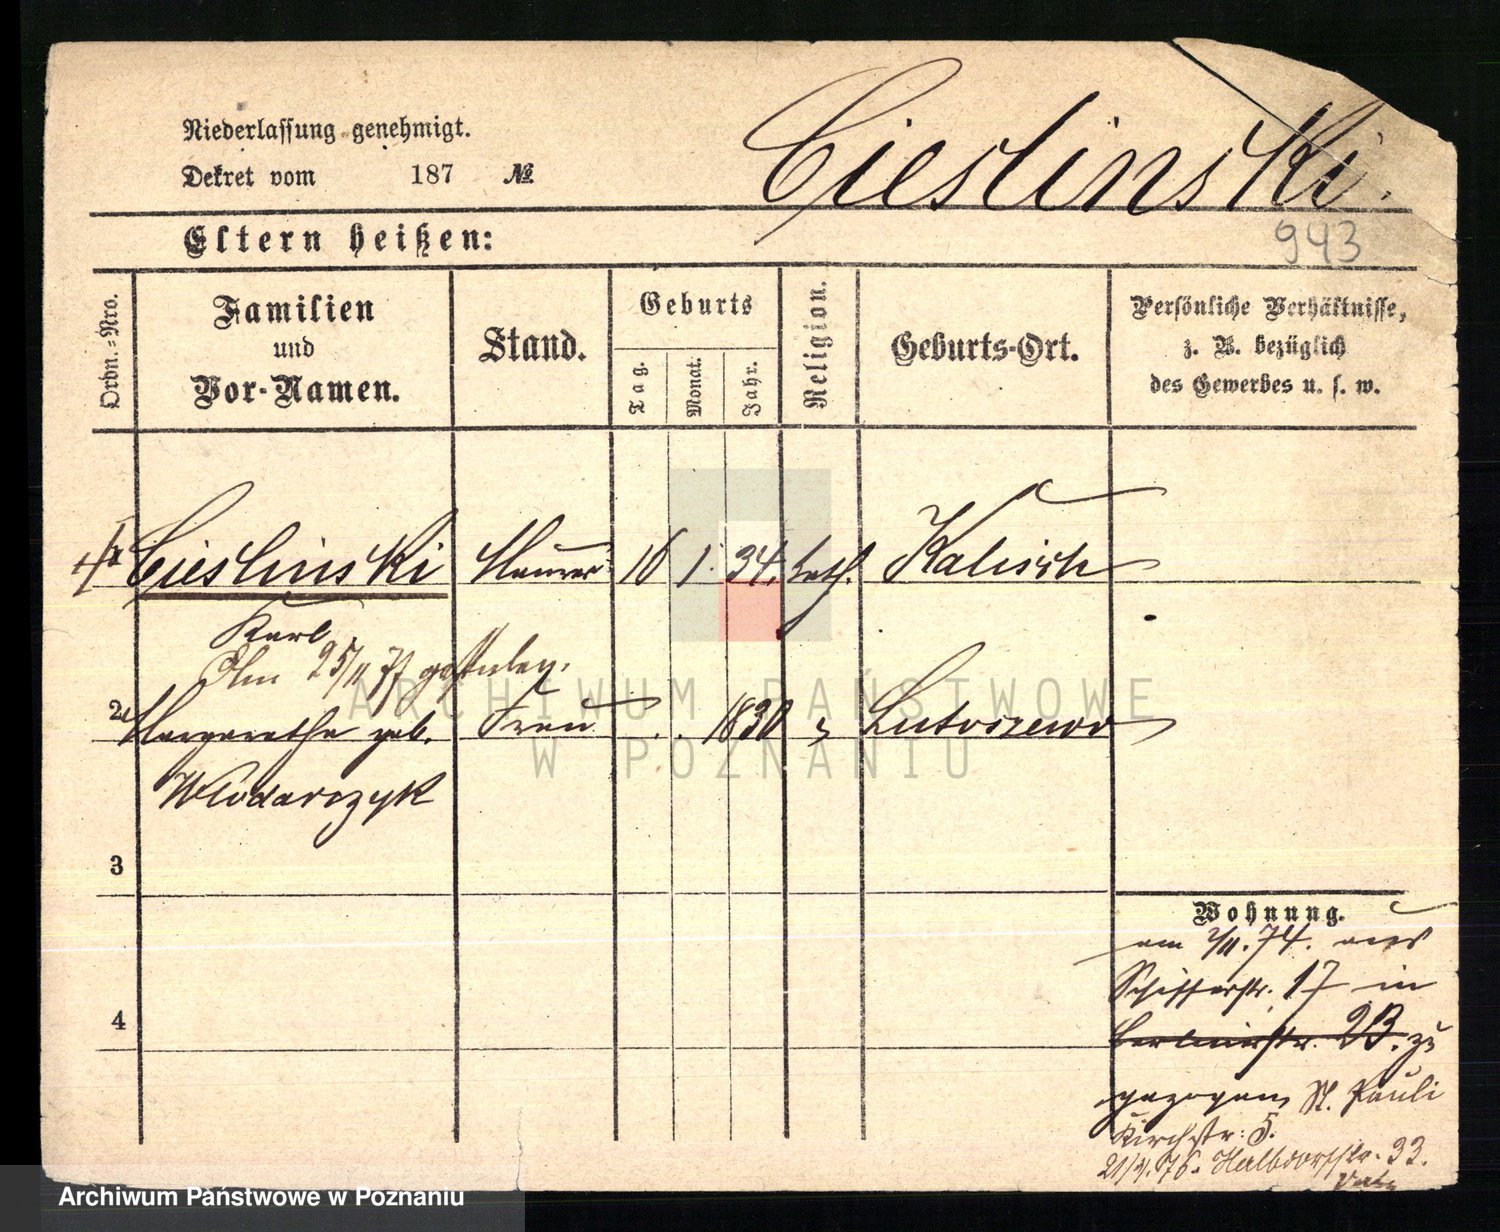 Niederlassung genehmigt.
Dekret vom 187 №
Cieslinski.
943
Eltern heißen:
Ordn.-Nro.
Familien
und
Vor-Namen.
Stand.
Geburts
Tag.
Monat.
Jahr.
Religion.
Geburts-Ort.
Persönliche Verhältnisse,
z. B. bezüglich
des Gewerbes u. s. w.
Cieslinski Maurer 16 1. 34. kath. Kalisch
Karl
Am 25/11 77 gestorben.
2 Margarethe geb. Frau . . 1830 " Lutoszewo
Wlodarczyk
3
4
Wohnung.
am 2/11. 74. aus
Schifferstr. 17 in
Berlinerstr. 23. zu
gezogen St. Pauli
Kirchstr: 5.
21/4. 76. Halbdorfstr. 33.
ARCHIWUM PAŃSTWOWE
W POZNANIU
Archiwum Państwowe w Poznaniu